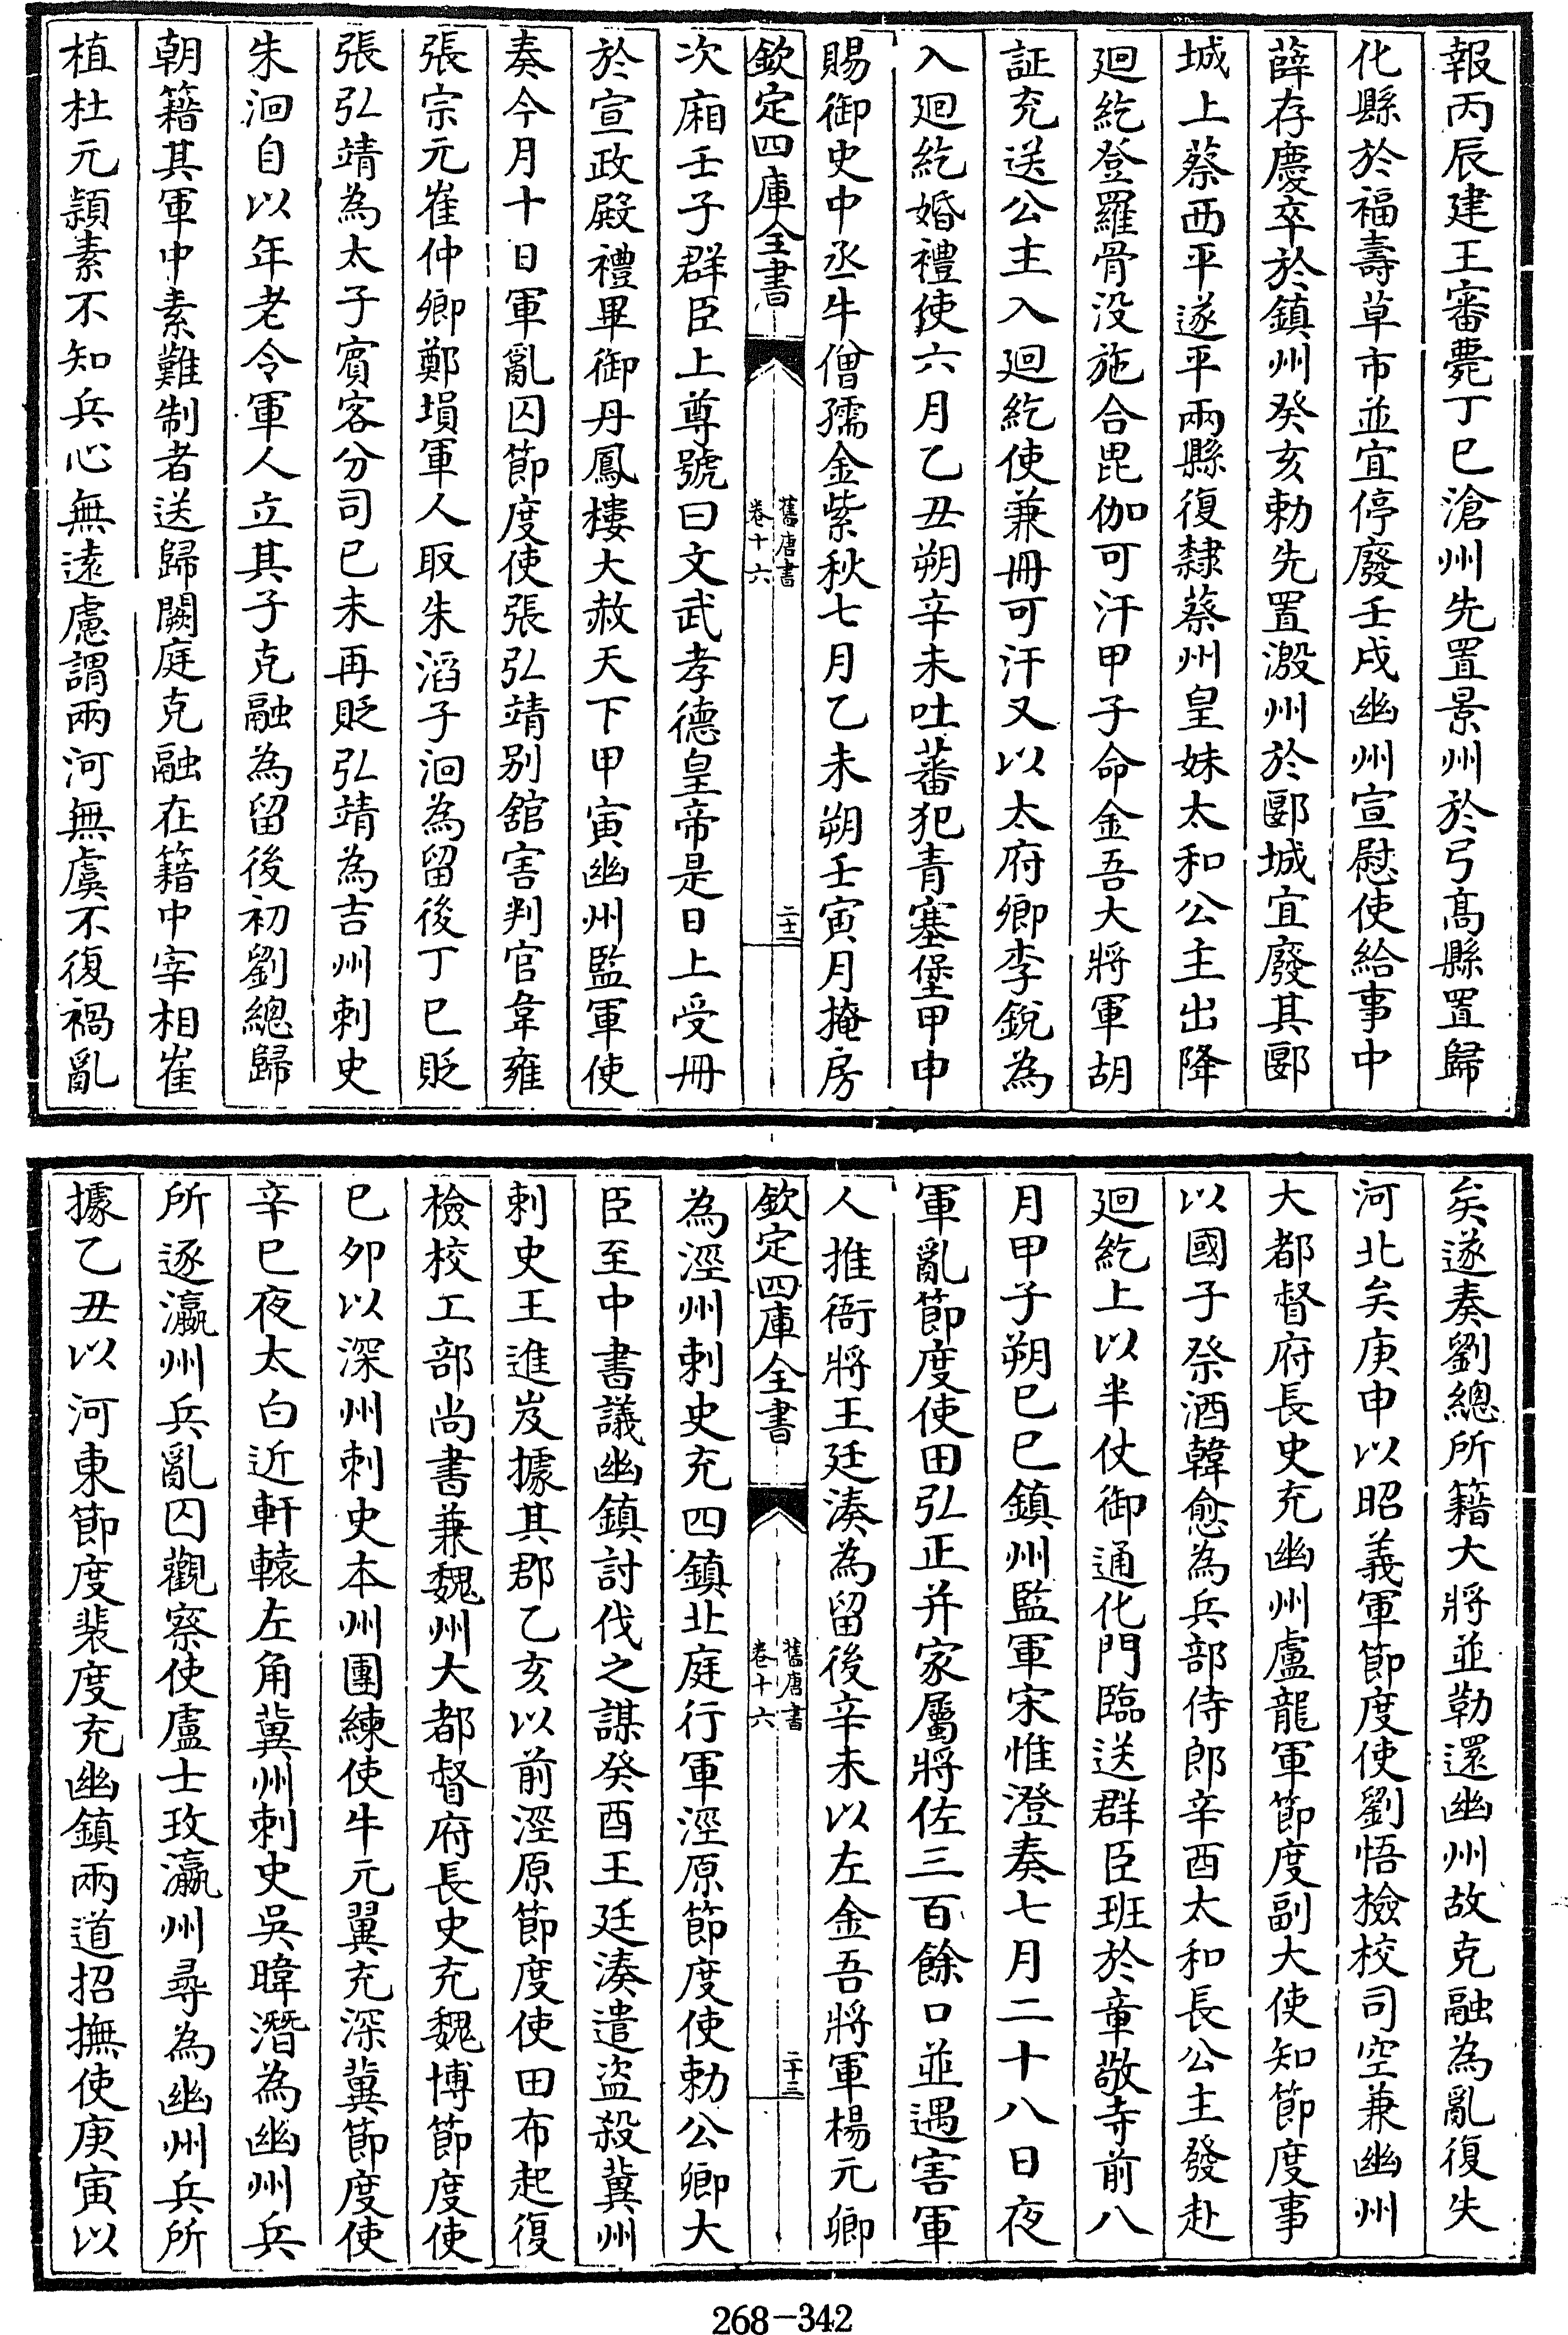 報丙辰建王審薨丁巳滄州先置景州於弓髙縣置歸
化縣於福壽草市並宜停廢壬戌幽州宣慰使給事中
薛存慶卒於鎮州癸亥勅先置溵州於郾城宜廢其郾
城上蔡西平遂平兩縣復隸蔡州皇妹太和公主出降
廻紇登羅骨没施合毘伽可汗甲子命金吾大將軍胡
証充送公主入廻紇使兼冊可汗又以太府卿李銳為
入廻紇婚禮使六月乙丑朔辛未吐蕃犯青塞堡甲申
賜御史中丞牛僧孺金紫秋七月乙未朔壬寅月掩房
欽定四庫全書
舊唐書
卷十六
二十二
次廂壬子群臣上尊號曰文武孝德皇帝是日上受冊
於宣政殿禮畢御丹鳳樓大赦天下甲寅幽州監軍使
奏今月十日軍亂囚節度使張弘靖别舘害判官韋雍
張宗元崔仲卿鄭塤軍人取朱滔子洄為留後丁巳貶
張弘靖為太子賓客分司已未再貶弘靖為吉州刺史
朱洄自以年老令軍人立其子克融為留後初劉總歸
朝籍其軍中素難制者送歸闕庭克融在籍中宰相崔
植杜元頴素不知兵心無遠慮謂兩河無虞不復禍亂
矣遂奏劉總所籍大將並勒還幽州故克融為亂復失
河北矣庚申以昭義軍節度使劉悟檢校司空兼幽州
大都督府長史充幽州盧龍軍節度副大使知節度事
以國子祭酒韓愈為兵部侍郎辛酉太和長公主發赴
廻紇上以半仗御通化門臨送群臣班於章敬寺前八
月甲子朔已巳鎮州監軍宋惟澄奏七月二十八日夜
軍亂節度使田弘正并家屬將佐三百餘口並遇害軍
人推衙將王廷湊為留後辛未以左金吾將軍楊元卿
欽定四庫全書
舊唐書
卷十六
二十三
為涇州刺史充四鎮北庭行軍涇原節度使勅公卿大
臣至中書議幽鎮討伐之謀癸酉王廷湊遣盜殺冀州
刺史王進岌據其郡乙亥以前涇原節度使田布起復
檢校工部尚書兼魏州大都督府長史充魏博節度使
已卯以深州刺史本州團練使牛元翼充深冀節度使
辛巳夜太白近軒轅左角冀州刺史吳暐潛為幽州兵
所逐瀛州兵亂囚觀察使盧士玫瀛州尋為幽州兵所
據乙丑以河東節度裴度充幽鎮兩道招撫使庚寅以
268-342